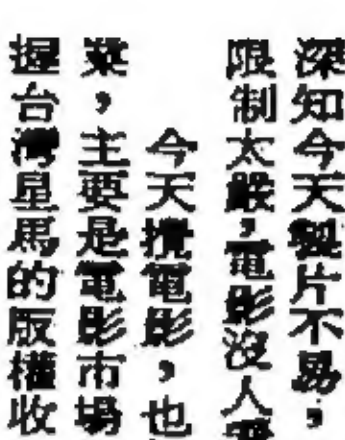 深知今天製片不易，
限制太嚴，電影沒人
今天攬電影，也
業，主要是電影市場
握台灣星馬的版權收